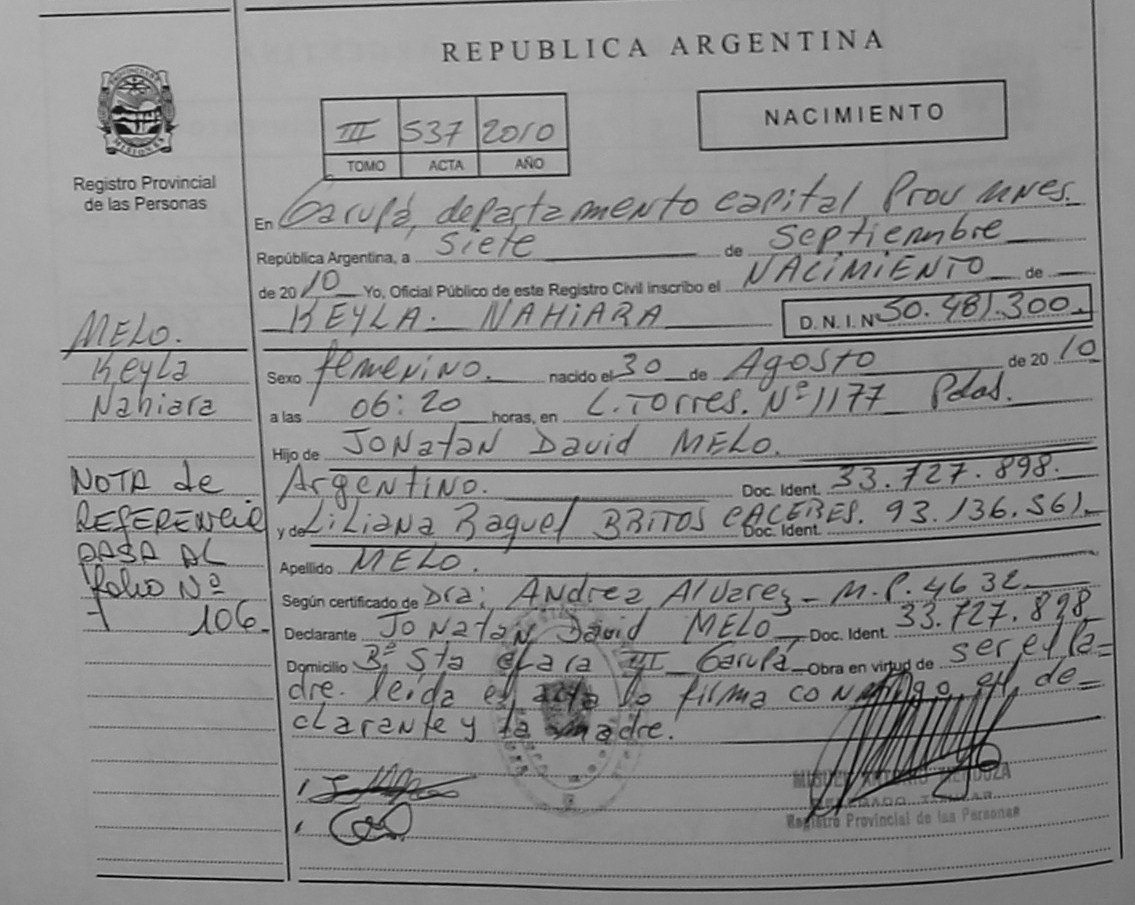 REPUBLICA ARGENTINA
PROVINCIA DE MISIONES
Registro Provincial
de las Personas
III 537 2010
TOMO ACTA AÑO
NACIMIENTO
En Garupá, departamento capital Prov mnes.
República Argentina, a siete de septiembre
de 2010 Yo, Oficial Público de este Registro Civil inscribo el NACIMIENTO de
KEYLA NAHIARA D.N.I.Nº 50.481.300.
MELO.
Keyla
Nahiara
Sexo femenino. nacido el 30 de Agosto de 2010
a las 06:20 horas, en L. Torres. Nº 1177 Pdas.
Hijo de JONatan David MELO.
Argentino. Doc. Ident. 33.727.898.
y de LiLiana Raquel BRITOS CACERES. Doc. Ident. 93.136.561.
Apellido MELO.
Según certificado de Dra: Andrea Alvarez - M.P. 4632
Declarante JONatan David MELO, Doc. Ident. 33.727.898
Domicilio Bº Sta clara III Garupá Obra en virtud de ser el Pa=
dre. leída el acta la firma conmigo, el de=
clarante y la madre.
NOTA de
REFERENCIA
PASA AL
folio Nº
106
MIGUEL ANTONIO MENDOZA
DELEGADO TITULAR
Registro Provincial de las Personas